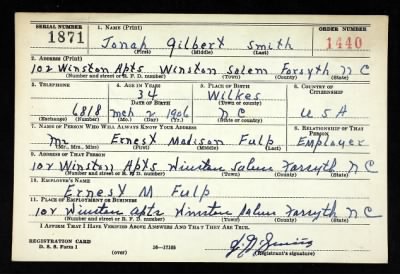 SERIAL NUMBER 1. NAME (Print) ORDER NUMBER
1871 Jonah Gilbert Smith 1440
(First) (Middle) (Last)
2. ADDRESS (Print)
102 Winston Apts Winston Salem Forsyth N C
(Number and street or R. F. D. number) (Town) (County) (State)
3. TELEPHONE 4. AGE IN YEARS 5. PLACE OF BIRTH 6. COUNTRY OF CITIZENSHIP
34 Wilkes
DATE OF BIRTH (Town or county)
6818 Mch 2 1906 N C U S A
(Exchange) (Number) (Mo.) (Day) (Yr.) (State or country)
7. NAME OF PERSON WHO WILL ALWAYS KNOW YOUR ADDRESS 8. RELATIONSHIP OF THAT PERSON
Mr Ernest Madison Fulp Employer
(Mr., Mrs., Miss) (First) (Middle) (Last)
9. ADDRESS OF THAT PERSON
102 Winston Apts Winston Salem Forsyth N C
(Number and street or R. F. D. number) (Town) (County) (State)
10. EMPLOYER'S NAME
Ernest M Fulp
11. PLACE OF EMPLOYMENT OR BUSINESS
102 Winston Apts Winston Salem Forsyth N C
(Number and street or R. F. D. number) (Town) (County) (State)
I AFFIRM THAT I HAVE VERIFIED ABOVE ANSWERS AND THAT THEY ARE TRUE.
REGISTRATION CARD
D. S. S. Form 1 (over) 16—17105 (Registrant's signature)